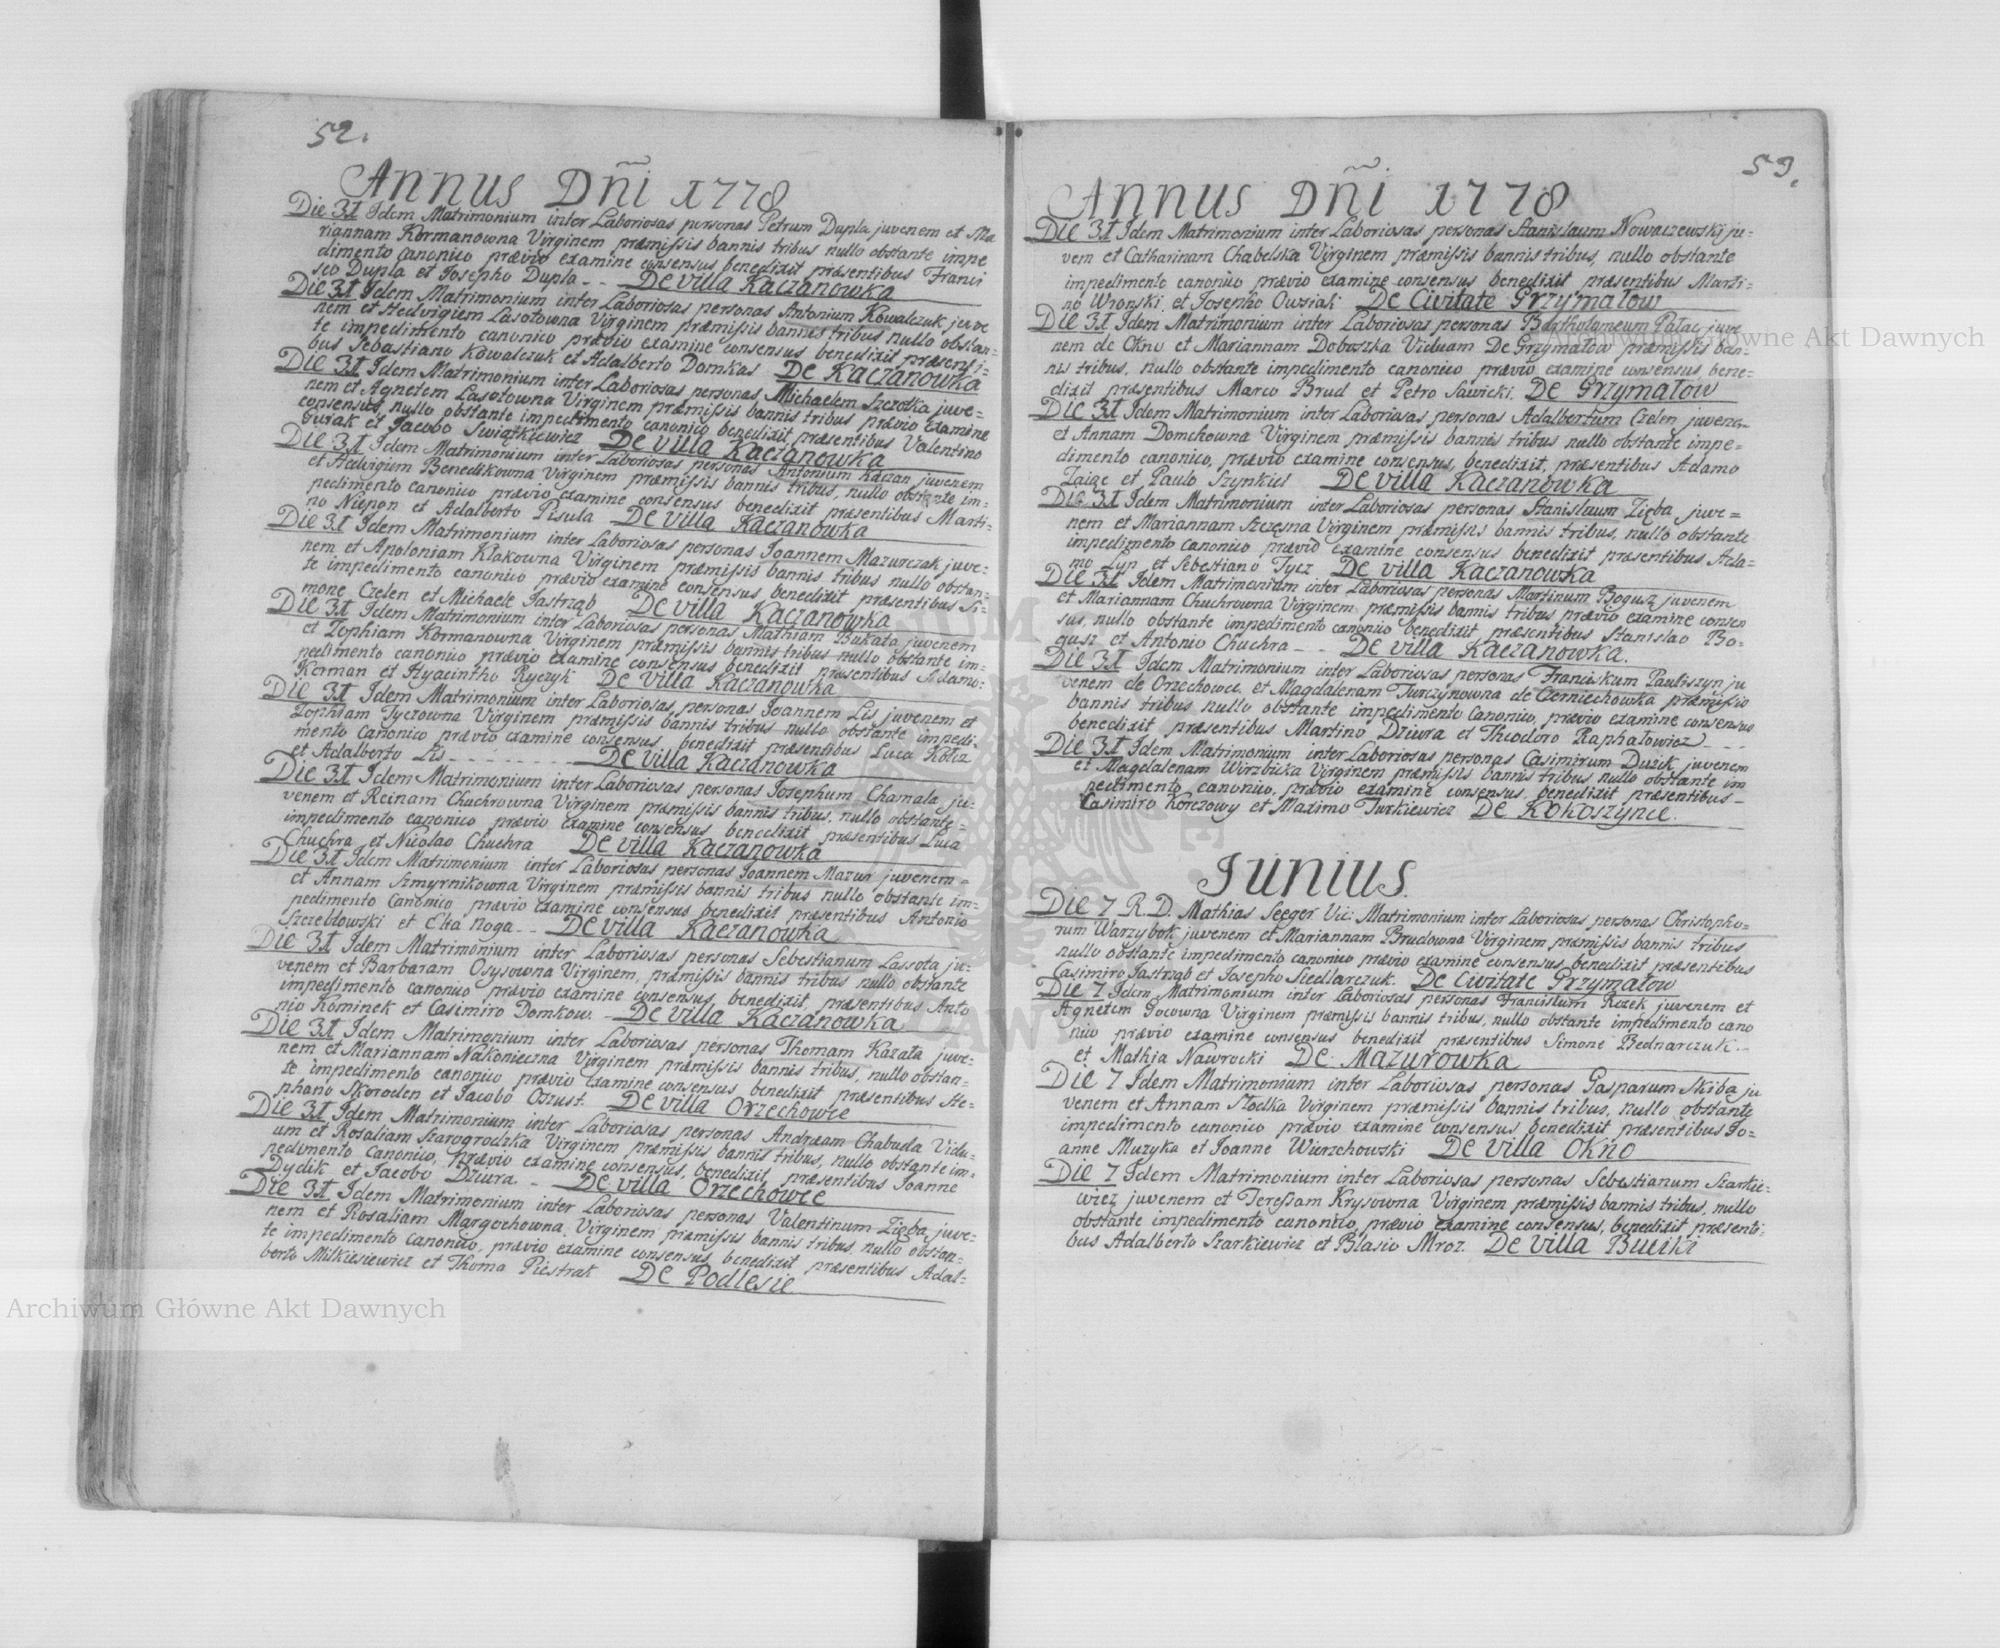 52.
Annus Dñi 1778
Die 31 Idem Matrimonium inter Laboriosas personas Petrum Dupla juvenem et Ma
riannam Kormanowna Virginem præmissis bannis tribus nullo obstante impe
dimento canonico prævio examine consensus benedixit præsentibus Franci
sco Dupla et Josepho Dupla - - De villa Kaczanowka
Die 31 Idem Matrimonium inter Laboriosas personas Antonium Kowalczuk juve
nem et Hedvigiem Lasotowna Virginem præmissis bannis tribus nullo obstan=
te impedimento canonico prævio examine consensus benedixit præsenti=
bus Sebastiano Kowalczuk et Adalberto Domkas De Kaczanowka
Die 31 Idem Matrimonium inter Laboriosas personas Michaelem Szczotka juve=
nem et Agnetem Lasotowna Virginem præmissis bannis tribus prævio examine
consensus, nullo obstante impedimento canonico benedixit præsentibus Valentino
Gurak et Jacobo Swiątkiewicz De villa Kaczanowka
Die 31 Idem Matrimonium inter Laboriosas personas Antonium Kaczan juvenem
et Hedvigiem Benedikowna Virginem præmissis bannis tribus, nullo obstante im=
pedimento canonico prævio examine consensus benedixit præsentibus Marti=
no Niepon et Adalberto Pisula De villa Kaczanowka
Die 31 Idem Matrimonium inter Laboriosas personas Joannem Mazurczak juve=
nem et Apoloniam Kłakowna Virginem præmissis bannis tribus nullo obstan=
te impedimento canonico prævio examine consensus benedixit præsentibus Si=
mone Czelen et Michaele Jastrząb De villa Kaczanowka
Die 31 Idem Matrimonium inter Laboriosas personas Mathiam Bukata juvenem
et Zophiam Kormanowna Virginem præmissis bannis tribus nullo obstante im=
pedimento canonico prævio examine consensus benedixit præsentibus Adamo
Korman et Hyacintho Ryczyk De villa Kaczanowka
Die 31 Idem Matrimonium inter Laboriosas personas Joannem Lis juvenem et
Zophiam Tyczowna Virginem præmissis bannis tribus nullo obstante impedi=
mento Canonico prævio examine consensus benedixit præsentibus Luca Kołcz
et Adalberto Lis - - - - - - - - De villa Kaczanowka
Die 31 Idem Matrimonium inter Laboriosas personas Josephum Chamala ju=
venem et Reinam Chuchrowna Virginem præmissis bannis tribus, nullo obstante=
impedimento canonico prævio examine consensus benedixit præsentibus Luca
Chuchra et Nicolao Chuchra De villa Kaczanowka
Die 31 Idem Matrimonium inter Laboriosas personas Joannem Mazur juvenem=
et Annam Szmyrnikowna Virginem præmissis bannis tribus nullo obstante im=
pedimento Canonico prævio examine consensus benedixit præsentibus Antonio
Szczeldowski et Elia Noga - - De villa Kaczanowka
Die 31 Idem Matrimonium inter Laboriosas personas Sebestianum Lassota ju=
venem et Barbaram Osysowna Virginem, præmissis bannis tribus nullo obstante
impedimento canonico prævio examine consensus benedixit præsentibus Anto
nio Kominek et Casimiro Domkow. - De villa Kaczanowka
Die 31 Idem Matrimonium inter Laboriosas personas Thomam Kazata juve=
nem et Mariannam Nakonieczna Virginem præmissis bannis tribus, nullo obstan=
te impedimento canonico prævio examine consensus benedixit præsentibus Ste=
phano Skoroden et Jacobo Ozust. De villa Orzechowce
Die 31 Idem Matrimonium inter Laboriosas personas Andream Chabuda Vidu=
um et Rosaliam Starogrodzka Virginem præmissis bannis tribus, nullo obstante im=
pedimento Canonico, prævio examine consensus, benedixit, præsentibus Joanne
Dydik et Jacobo Dziura. - De villa Orzechowce
Die 31 Idem Matrimonium inter Laboriosas personas Valentinum Zięba juve=
nem et Rosaliam Margochowna Virginem præmissis bannis tribus nullo obstan=
te impedimento Canonico, prævio examine consensus, benedixit præsentibus Adal=
berto Milkiesiewicz et Thoma Piestrak De Podlesie.
53.
Annus Dñi 1778
Die 31 Idem Matrimonium inter Laboriosas personas Stanislaum Nowaczewskij ju=
vem et Catharinam Chabelska Virginem præmissis bannis tribus, nullo obstante
impedimento canonico prævio examine consensus benedixit præsentibus Marti=
no Wronski et Josepho Owsiak De Civitate Grzymałow
Die 31 Idem Matrimonium inter Laboriosas personas Bartholomeum Pałac juve
nem de Okno et Mariannam Doboszka Viduam De Grzymałow præmissis ban=
nis tribus, nullo obstante impedimento canonico prævio examine consensus, bene=
dixit præsentibus Marco Brud et Petro Sawicki. De Grzymałow
Die 31 Idem Matrimonium inter Laboriosas personas Adalbertum Czelen juvenem
et Annam Domchowna Virginem præmissis bannis tribus nullo obstante impe=
dimento canonico, prævio examine consensus, benedixit, præsentibus Adamo
Zaiąc et Paulo Szynkiel De villa Kaczanowka
Die 31 Idem Matrimonium inter Laboriosas personas Stanislaum Zięba juve=
nem et Mariannam Szczęsna Virginem præmissis bannis tribus, nullo obstante
impedimento canonico prævio examine consensus benedixit præsentibus Ada=
mo Zyn et Sebestiano Tycz De villa Kaczanowka
Die 31 Idem Matrimonium inter Laboriosas personas Martinum Bogusz juvenem
et Mariannam Chuchrowna Virginem præmissis bannis tribus prævio examine consen
sus, nullo obstante impedimento canonico benedixit præsentibus Stanislao Bo=
gusz et Antonio Chuchra - - De villa Kaczanowka.
Die 31 Idem Matrimonium inter Laboriosas personas Franciskum Pauliszyn ju
venem de Orzechowce, et Magdalenam Turczynowna de Czerniechowka præmissis
bannis tribus nullo obstante impedimento Canonico, prævio examine consensus
benedixit præsentibus Martino Dziura et Theodoro Raphałowicz - - -
Die 31 Idem Matrimonium inter Laboriosas personas Casimirum Duzik juvenem
et Magdalenam Wirzbicka Virginem præmissis bannis tribus nullo obstante im
pedimento canonico, prævio examine consensus, benedixit præsentibus -
Casimiro Korczowy et Maximo Turkiewicz De Kokoszynce.
Junius.
Die 7 R. D. Mathias Seeger Vic: Matrimonium inter Laboriosas personas Christopho=
rum Warzybok juvenem et Mariannam Brudowna Virginem præmissis bannis tribus
nullo obstante impedimento canonico prævio examine consensus benedixit præsentibus
Casimiro Jastrząb et Josepho Siedlarczuk. De Civitate Grzymałow
Die 7 Idem Matrimonium inter Laboriosas personas Franciscum Rozek juvenem et
Agnetem Gocowna Virginem præmissis bannis tribus, nullo obstante impedimento cano
nico prævio examine consensus benedixit præsentibus Simone Bednarczuk -
et Mathia Nawrocki De Mazurowka
Die 7 Idem Matrimonium inter Laboriosas personas Gasparum Skiba ju
venem et Annam Stoelka Virginem præmissis bannis tribus, nullo obstante
impedimento canonico prævio examine consensus benedixit præsentibus Jo=
anne Muzyka et Joanne Wierzchowski De villa Okno
Die 7 Idem Matrimonium inter Laboriosas personas Sebestianum Szarkie=
wicz juvenem et Teressam Krysowna Virginem præmissis bannis tribus, nullo
obstante impedimento canonico, prævio examine consensus, benedixit, præsenti=
bus Adalberto Szarkiewicz et Blasio Mroz. De villa Buciki
Archiwum Główne Akt Dawnych
Główne Akt Dawnych